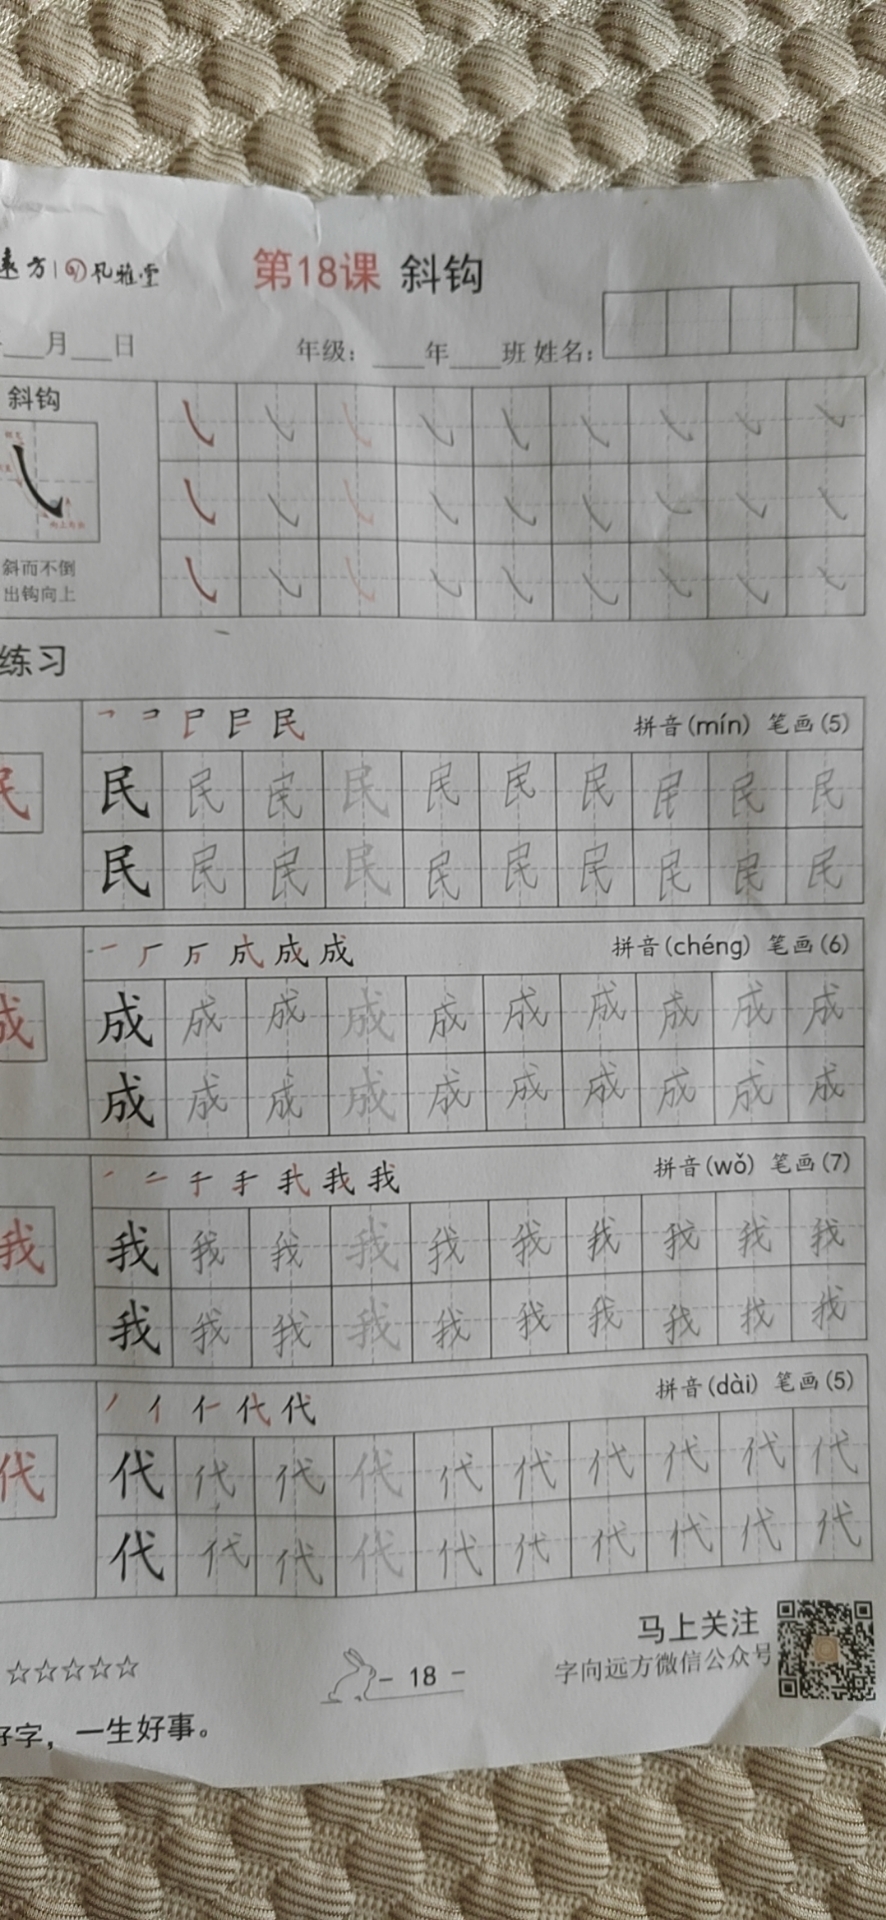 遠方 | 风雅堂
第18课 斜钩
月 日 年级： 年 班 姓名：
斜钩
斜而不倒
出钩向上
练习
民 拼音(mín) 笔画(5)
民 民 民 民 民 民 民 民 民 民 民
民 民 民 民 民 民 民 民 民 民
成 拼音(chéng) 笔画(6)
成 成 成 成 成 成 成 成 成 成 成
成 成 成 成 成 成 成 成 成 成
我 拼音(wǒ) 笔画(7)
我 我 我 我 我 我 我 我 我 我 我
我 我 我 我 我 我 我 我 我 我
代 拼音(dài) 笔画(5)
代 代 代 代 代 代 代 代 代 代 代
代 代 代 代 代 代 代 代 代 代
马上关注
字向远方微信公众号
☆☆☆☆☆
- 18 -
好字，一生好事。